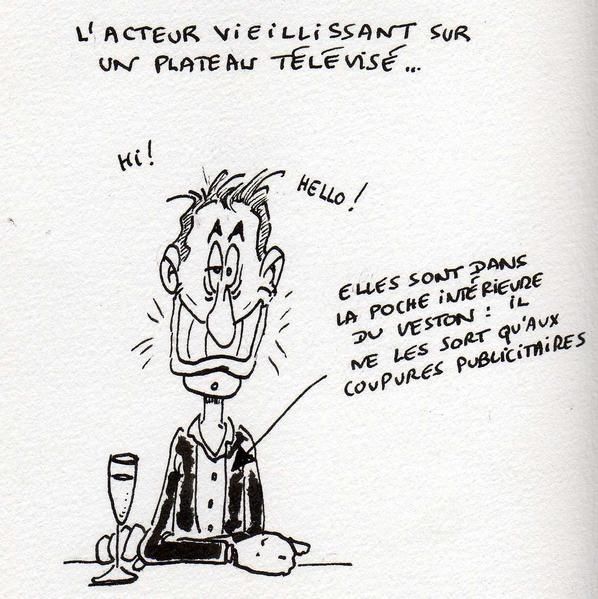 L'ACTEUR VIEILLISSANT SUR
UN PLATEAU TÉLÉVISÉ...
HI!
HELLO!
ELLES SONT DANS
LA POCHE INTÉRIEURE
DU VESTON : IL
NE LES SORT QU'AUX
COUPURES PUBLICITAIRES